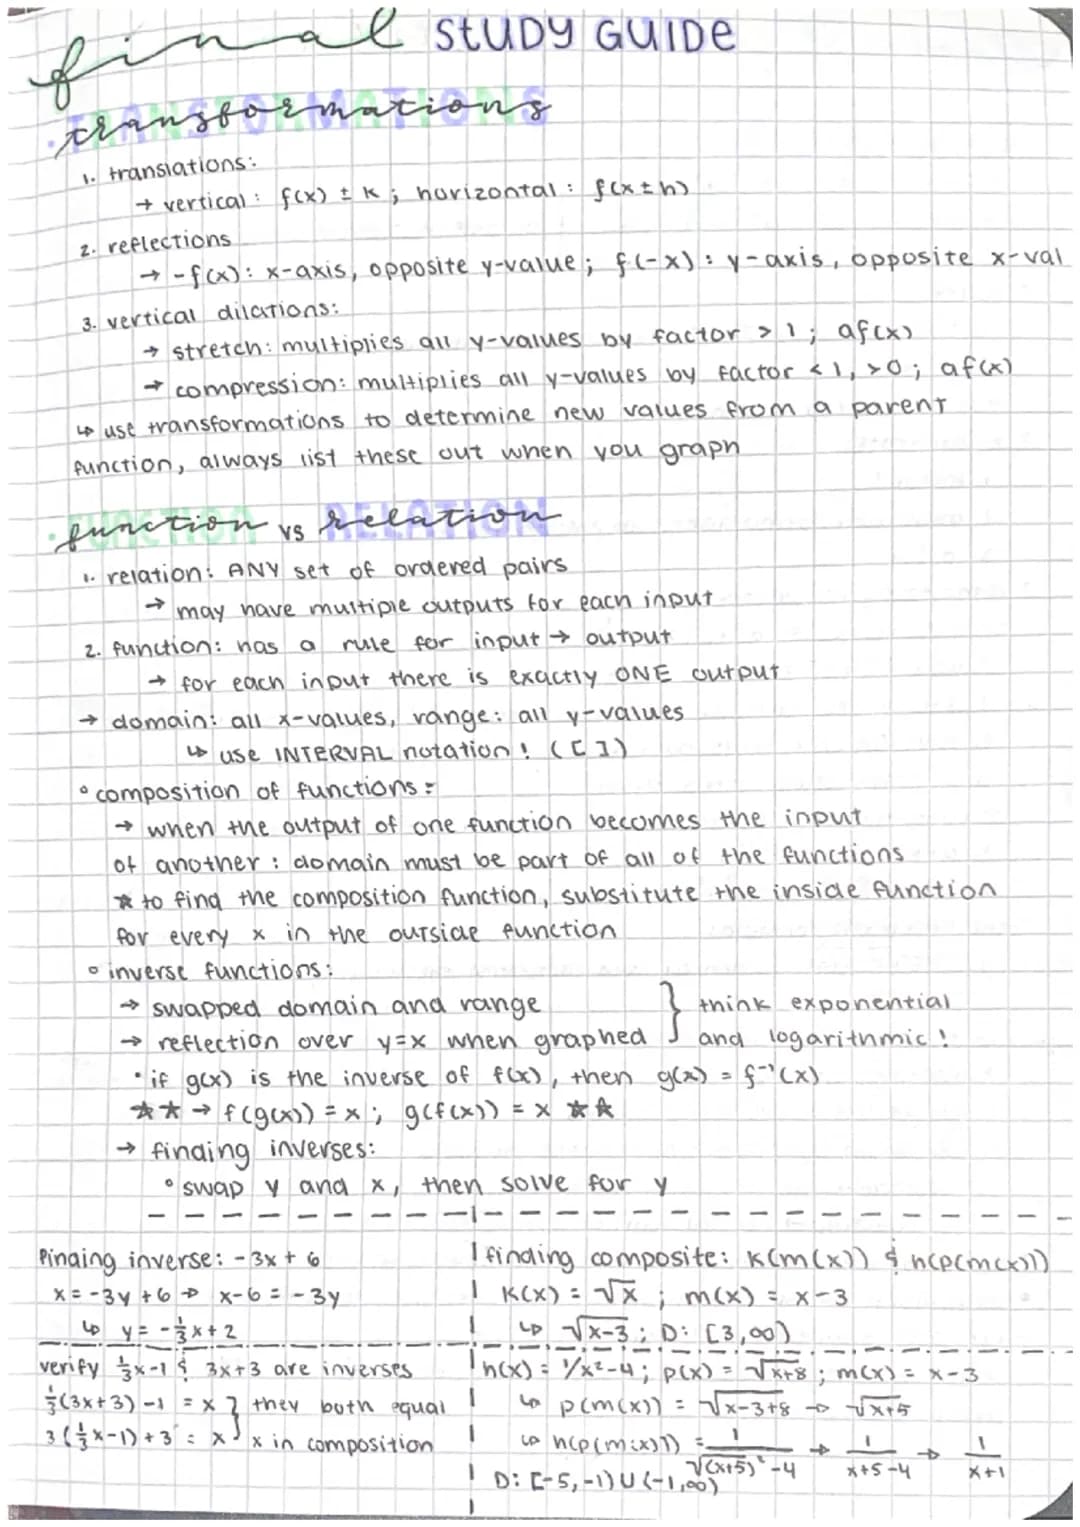 final STUDY GUIDE
• transformations
1. translations:
→ vertical: f(x) ± k; horizontal: f(x±h)
2. reflections
→ -f(x): x-axis, opposite y-value; f(-x): y-axis, opposite x-val
3. vertical dilations:
→ stretch: multiplies all y-values by factor > 1; af(x)
→ compression: multiplies all y-values by factor < 1, >0; af(x)
↳ use transformations to determine new values from a parent
function, always list these out when you graph
• function vs relation
1. relation: ANY set of ordered pairs
→ may have multiple outputs for each input
2. function: has a rule for input → output
→ for each input there is exactly ONE output
→ domain: all x-values, range: all y-values
↳ use INTERVAL notation! ([])
° composition of functions:
→ when the output of one function becomes the input
of another: domain must be part of all of the functions
☆ to find the composition function, substitute the inside function
for every x in the outside function
° inverse functions:
→ swapped domain and range } think exponential
→ reflection over y=x when graphed } and logarithmic!
• if g(x) is the inverse of f(x), then g(x) = f⁻¹(x)
☆☆ → f(g(x)) = x; g(f(x)) = x ☆☆
→ finding inverses:
° swap y and x, then solve for y
finding inverse: -3x + 6
x = -3y + 6 → x-6 = -3y
↳ y = -⅓x + 2
verify ⅓x-1 & 3x+3 are inverses
⅓(3x+3)-1 = x } they both equal
3(⅓x-1)+3 = x } x in composition
finding composite: k(m(x)) & h(p(m(x)))
k(x) = √x; m(x) = x-3
↳ √x-3; D: [3,∞)
h(x) = 1/x²-4; p(x) = √x+8; m(x) = x-3
↳ p(m(x)) = √x-3+8 → √x+5
↳ h(p(m(x))) = 1/√(x+5)²-4 → 1/x+5-4 → 1/x+1
D: [-5,-1) U (-1,∞)